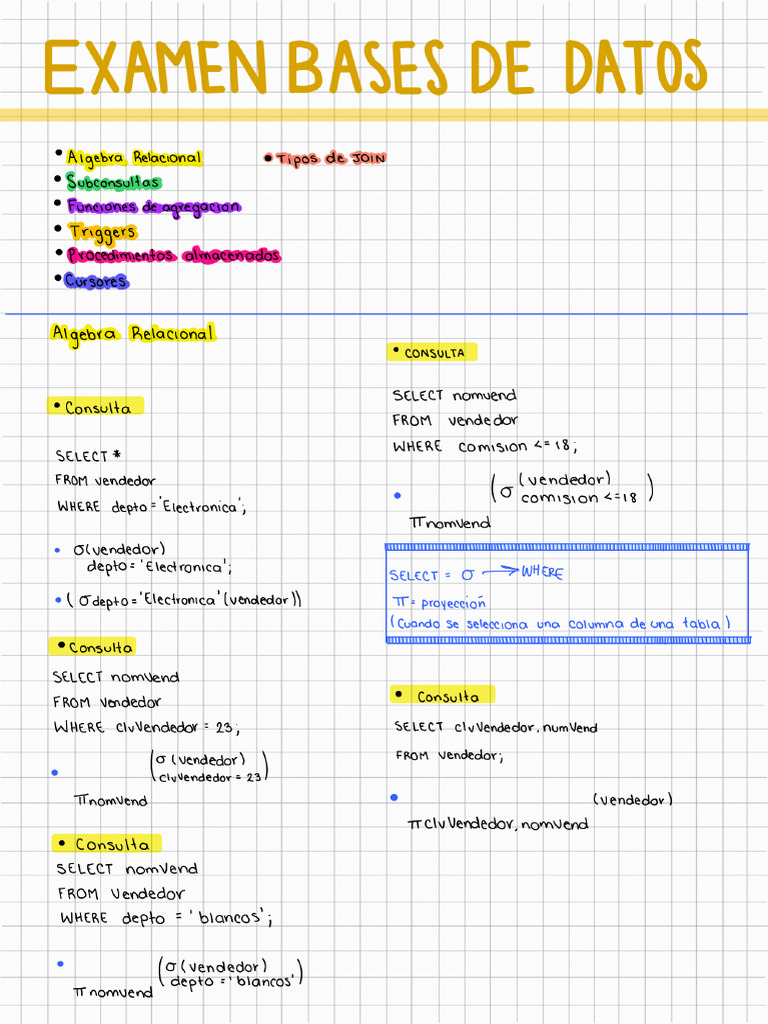 EXAMEN BASES DE DATOS
• Algebra Relacional
• Subconsultas
• Funciones de agregacion
• Triggers
• Procedimientos almacenados
• Cursores
• Tipos de JOIN
Algebra Relacional
• Consulta
SELECT *
FROM vendedor
WHERE depto = 'Electronica';
• σ(vendedor)
depto = 'Electronica';
• (σ depto = 'Electronica' (vendedor))
• Consulta
SELECT nomVend
FROM vendedor
WHERE clvVendedor = 23;
• (σ(vendedor)
clvVendedor = 23)
π nomVend
• Consulta
SELECT nomVend
FROM Vendedor
WHERE depto = 'blancos';
• (σ(vendedor)
depto = 'blancos')
π nomvend
• CONSULTA
SELECT nomvend
FROM vendedor
WHERE comision <= 18;
• (σ (vendedor)
comision <= 18)
π nomvend
SELECT = σ → WHERE
π = proyección
(Cuando se selecciona una columna de una tabla)
• Consulta
SELECT clvVendedor, numVend
FROM vendedor;
• (vendedor)
π clvVendedor, nomVend